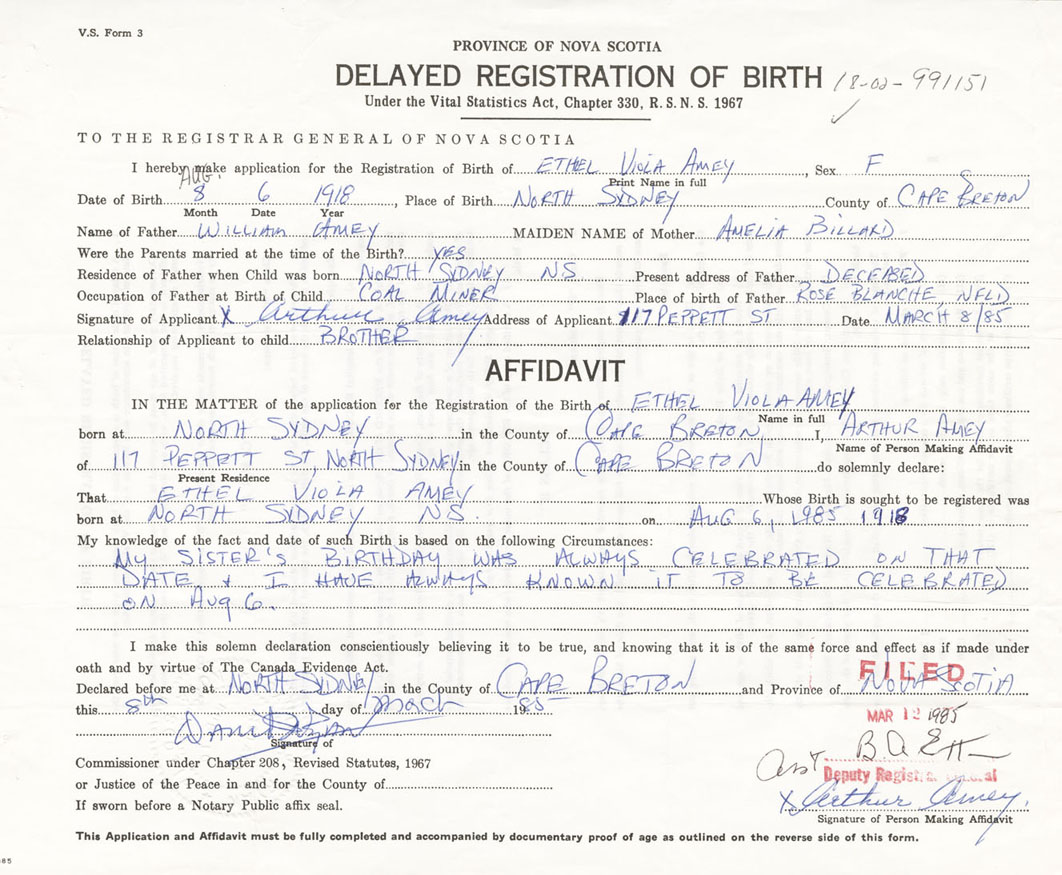 V.S. Form 3
PROVINCE OF NOVA SCOTIA
DELAYED REGISTRATION OF BIRTH 18-02-991151
Under the Vital Statistics Act, Chapter 330, R.S.N.S. 1967
TO THE REGISTRAR GENERAL OF NOVA SCOTIA
I hereby make application for the Registration of Birth of ETHEL VIOLA AMEY, Sex F
Print Name in full
AUG.
Date of Birth 8 6 1918, Place of Birth NORTH SYDNEY County of CAPE BRETON
Month Date Year
Name of Father WILLIAM AMEY MAIDEN NAME of Mother AMELIA BILLARD
Were the Parents married at the time of the Birth? YES
Residence of Father when Child was born NORTH SYDNEY NS Present address of Father DECEASED
Occupation of Father at Birth of Child COAL MINER Place of birth of Father ROSE BLANCHE, NFLD
Signature of Applicant X Arthur Amey Address of Applicant 117 PEPPETT ST Date MARCH 8/85
Relationship of Applicant to child BROTHER
AFFIDAVIT
IN THE MATTER of the application for the Registration of the Birth of ETHEL VIOLA AMEY
Name in full
born at NORTH SYDNEY in the County of CAPE BRETON, I, ARTHUR AMEY
Name of Person Making Affidavit
of 117 PEPPETT ST, NORTH SYDNEY in the County of CAPE BRETON do solemnly declare:
Present Residence
That ETHEL VIOLA AMEY Whose Birth is sought to be registered was
born at NORTH SYDNEY NS. on AUG 6, 1985 1918
My knowledge of the fact and date of such Birth is based on the following Circumstances:
MY SISTER'S BIRTHDAY WAS ALWAYS CELEBRATED ON THAT
DATE & I HAVE ALWAYS KNOWN IT TO BE CELEBRATED
ON Aug 6.
I make this solemn declaration conscientiously believing it to be true, and knowing that it is of the same force and effect as if made under
oath and by virtue of The Canada Evidence Act.
FILED
Declared before me at NORTH SYDNEY in the County of CAPE BRETON and Province of NOVA SCOTIA
this 8th day of March 1985
MAR 12 1985
Signature of
Commissioner under Chapter 208, Revised Statutes, 1967
Asst Deputy Registrar General
or Justice of the Peace in and for the County of
X Arthur Amey.
If sworn before a Notary Public affix seal.
Signature of Person Making Affidavit
This Application and Affidavit must be fully completed and accompanied by documentary proof of age as outlined on the reverse side of this form.
85